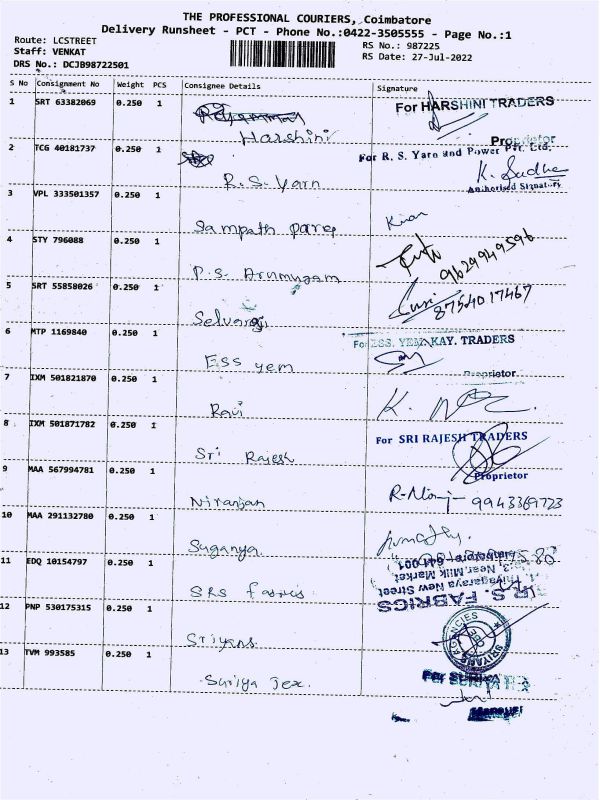 THE PROFESSIONAL COURIERS, Coimbatore
Delivery Runsheet - PCT - Phone No.:0422-3505555 - Page No.:1
Route: LCSTREET
RS No.: 987225
Staff: VENKAT
RS Date: 27-Jul-2022
DRS No.: DCJB98722501
S No Consignment No Weight PCS Consignee Details Signature
1 SRT 63382069 0.250 1
For HARSHINI TRADERS
Harshini
Proprietor
2 TCG 40181737 0.250 1
For R. S. Yarn and Power Pvt. Ltd.
K. Sudha
R.S. Yarn
Authorised Signatory
3 VPL 333501357 0.250 1
Sampath
4 STY 796088 0.250 1
9629949596
P.S. Arumugam
5 SRT 55858026 0.250 1
8754017467
Selvaraj
6 MTP 1169840 0.250 1
For ESS. YEM. KAY. TRADERS
ESS yem
Proprietor
7 IXM 501821870 0.250 1
Ravi
K.
8 IXM 501871782 0.250 1
For SRI RAJESH TRADERS
Sri Rajesh
Proprietor
9 MAA 567994781 0.250 1
Niranjan
9943369723
10 MAA 291132780 0.250 1
Suganya
11 EDQ 10154797 0.250 1
Coimbatore-641 001
3, Near. Milk Market
Thiyagaraya New Street
R.S. FABRICS
SRS fabrics
12 PNP 530175315 0.250 1
SRIYANS AGENCIES
Sriyans
13 TVM 993585 0.250 1
For SURIYA TEX
Suriya Tex.
Manager